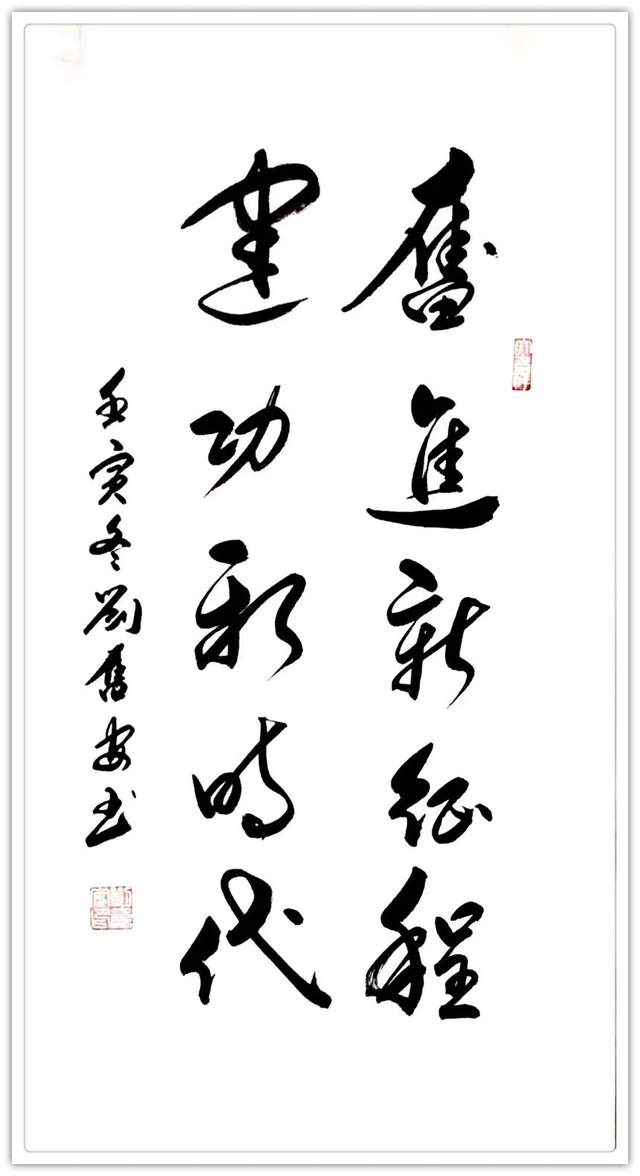 奮進新征程
建功新時代
壬寅冬劉舊安书